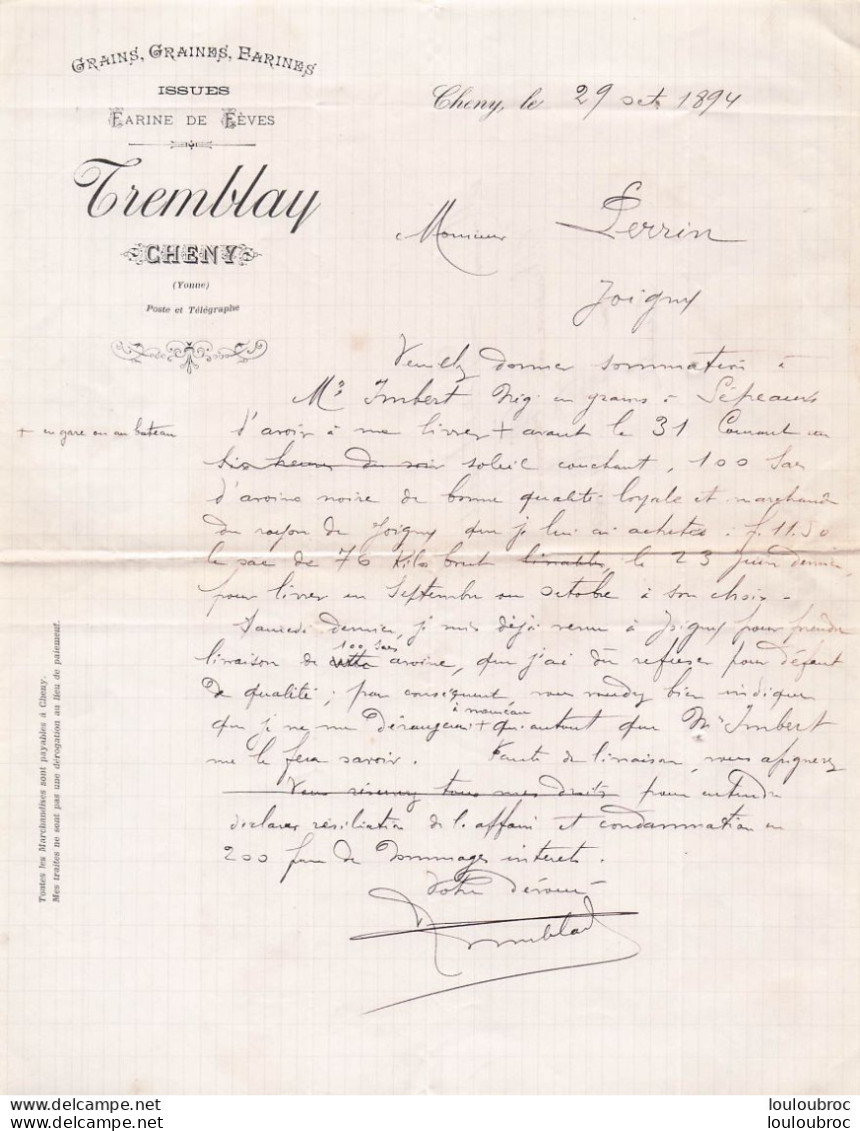 GRAINS, GRAINES, FARINES
ISSUES
FARINE DE FÈVES
Tremblay
CHENY
(Yonne)
Poste et Télégraphe
Cheny, le 29 oct 1894
Monsieur Perrin
Joigny
Veuillez donner sommation à
Mr Imbert Nég. en grains à Sépeaux
+ en gare ou au bateau
d'avoir à me livrer + avant le 31 Courant au
six heures du soir soleil couchant, 100 Sacs
d'avoine noire de bonne qualité loyale et marchande
du rayon de Joigny que je lui ai achetés f. 11.50
le sac de 76 Kilos brut livrables, le 23 Juin dernier,
pour livrer en Septembre ou octobre à son choix -
Samedi dernier, je suis déjà venu à Joigny pour prendre
livraison de 100 sacs avoine, que j'ai dû refuser pour défaut
de qualité ; par conséquent vous voudrez bien indiquer
que je ne me dérangerai + à nouveau qu'autant que Mr Imbert
me le fera savoir. Faute de livraison, vous assignerez
Vous réservez tous mes droits pour entendre
déclarer résiliation de l'affaire et condamnation en
200 fr de Dommages intérêts.
Votre dévoué
Tremblay
Toutes les Marchandises sont payables à Cheny.
Mes traites ne sont pas une dérogation au lieu de paiement.
delcampe.net
louloubroc
delcampe.net
louloubroc